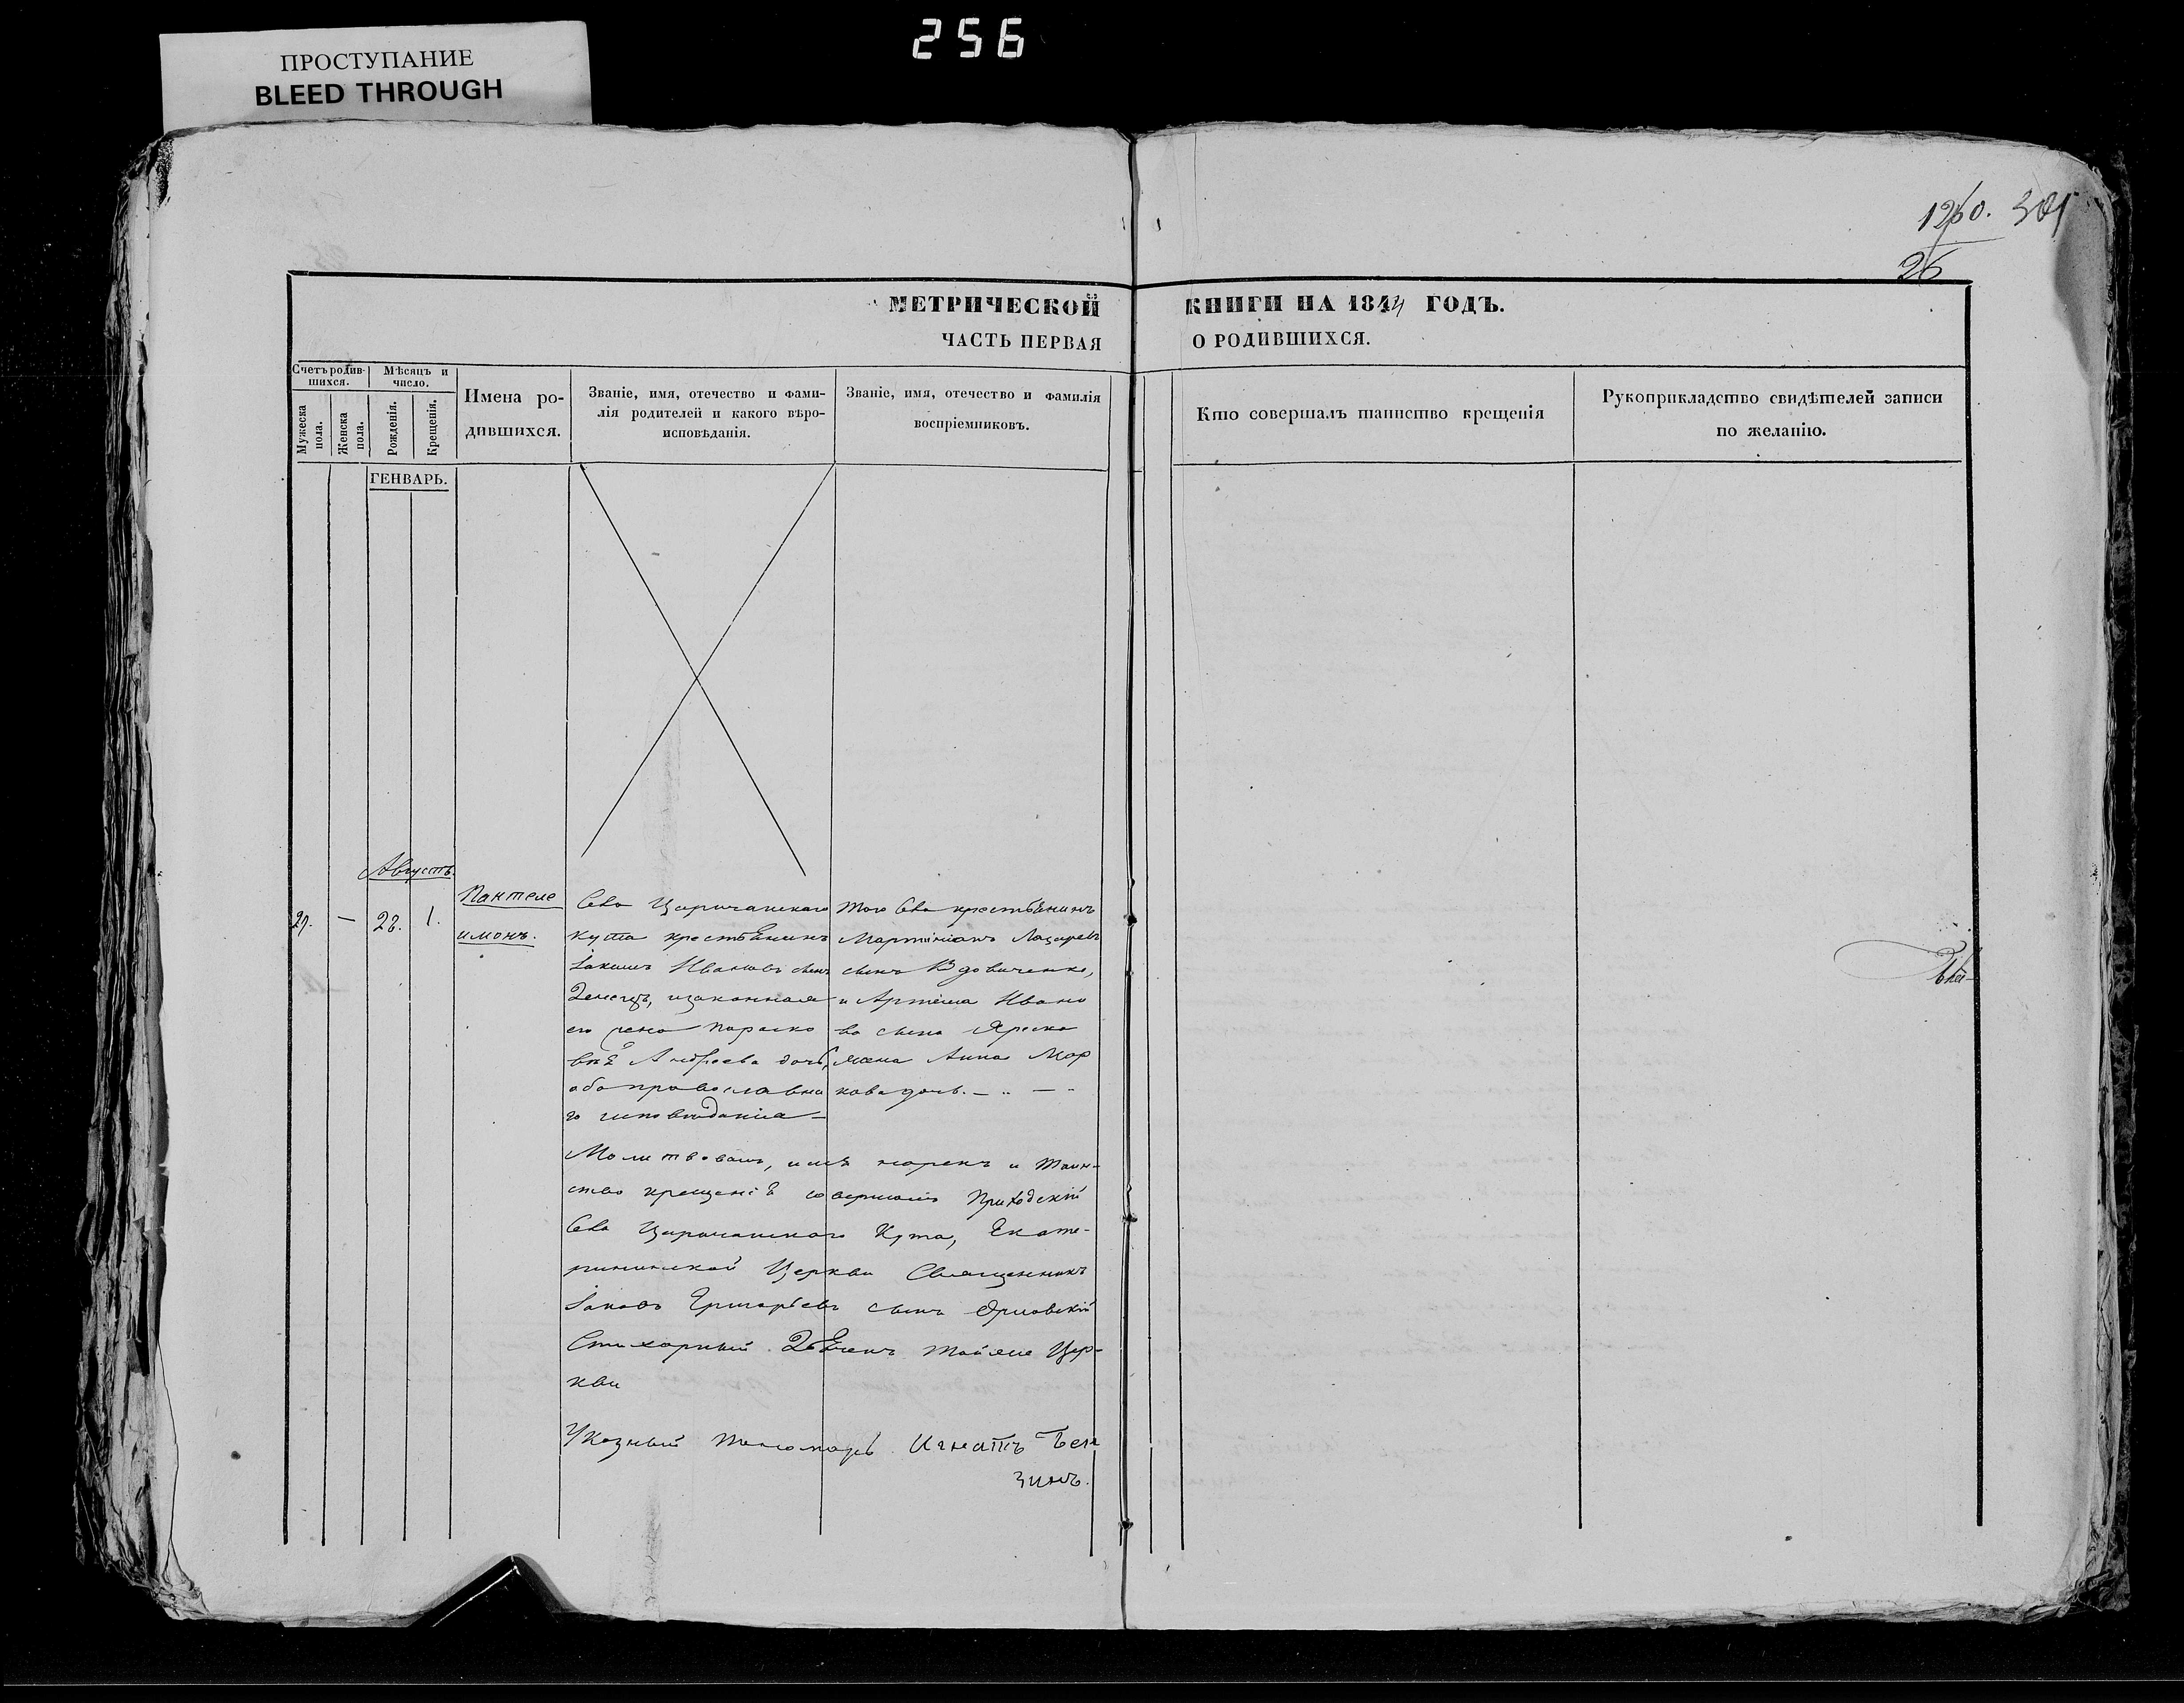 256
ПРОСТУПАНИЕ
BLEED THROUGH
1260. 301
26
МЕТРИЧЕСКОЙ КНИГИ НА 1844 ГОДЪ.
ЧАСТЬ ПЕРВАЯ О РОДИВШИХСЯ.
Счетъ родив-
шихся.
Мѣсяцъ и
число.
Мужеска
пола.
Женска
пола.
Рожденія.
Крещенія.
Имена ро-
дившихся.
Званіе, имя, отечество и фами-
лія родителей и какого вѣро-
исповѣданія.
Званіе, имя, отечество и фамилія
воспріемниковъ.
Кто совершалъ таинство крещенія
Рукоприкладство свидѣтелей записи
по желанію.
ГЕНВАРЬ.
Августъ.
29. — 28. 1.
Пантеле
имонъ.
Села Царичанскаго
кута крестьянинъ
Іакимъ Ивановъ сынъ
изаконная
его жена Параско
вѣя Андреева дочь,
оба православна
го исповѣданія —
Того Села крестьянинъ
Мартиніанъ Лазаревъ
сынъ Вдовиченко,
и Артема Ивано
ва сына Яреска
жена Анна Мар
кова дочь. — .. — ..
Молитвовалъ, имя нарекъ и Таин-
ство крещенія совершалъ Приходскій
Села Царичанскаго Кута, Екате-
рининской Церкви Священникъ
Іаковъ Григорьевъ сынъ Орловскій
Стихарный Дьячекъ тойже Цер-
кви
Указный Пономарь Игнатъ
зинъ.